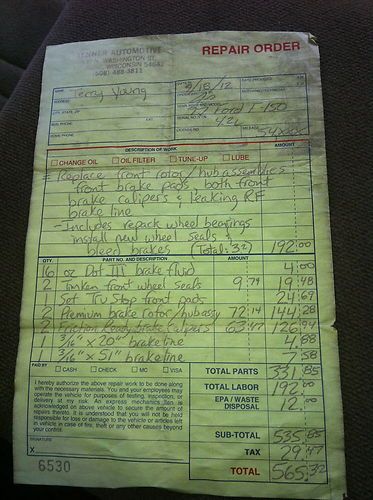 AUTOMOTIVE
WASHINGTON ST
WISCONSIN
(608) 488-3811
REPAIR ORDER
NAME Terry Young
ADDRESS
CITY, STATE, ZIP
HOME PHONE
DATE 2/18/12
Ford F-150
4.2L
LICENSE NO.
MILEAGE
DESCRIPTION OF WORK AMOUNT
CHANGE OIL OIL FILTER TUNE-UP LUBE
- Replace front rotor/hub assemblies
front brake pads, both front
brake calipers & leaking RF
brake line
- Includes repack wheel bearings
install new wheel seals &
bleed brakes (Total: 3.2) 192.00
QTY. PART NO. AND DESCRIPTION AMOUNT
16 oz Dot III brake fluid 4.00
2 Timken front wheel seals 9.74 19.48
1 Set Tru Stop front pads 24.69
2 Premium brake rotor/hub assy 72.14 144.28
2 Friction Ready brake calipers 63.47 126.94
1 3/16" x 20" brake line 4.88
1 3/16" x 51" brake line 7.58
PAID BY CASH CHECK MC VISA
TOTAL PARTS 331.85
I hereby authorize the above repair work to be done along
with the necessary materials. You and your employees may
operate the vehicle for purposes of testing, inspection, or
delivery at my risk. An express mechanics lien is
acknowledged on above vehicle to secure the amount of
repairs thereto. It is understood that you will not be held
responsible for loss or damage to the vehicle or articles left
in vehicle in case of fire, theft or any other causes beyond
your control.
TOTAL LABOR 192.00
EPA / WASTE
DISPOSAL 12.00
SUB-TOTAL 535.85
TAX 29.47
SIGNATURE
X
TOTAL 565.32
6530